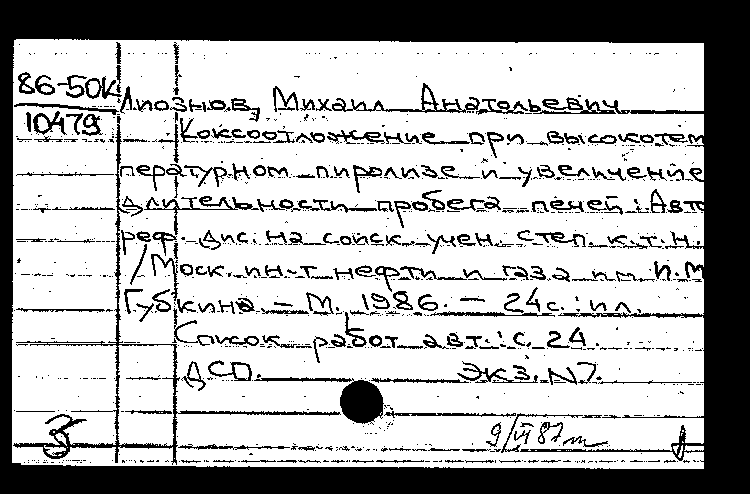 86-50К
10479
Лиознов, Михаил Анатольевич
Коксоотложение при высокотем
пературном пиролизе и увеличение
длительности пробега печей : Авто
реф. дис. на соиск. учен. степ. к.т.н.
/Моск. ин-т нефти и газа им. И.М
Губкина. – М., 1986. – 24с. : ил.
Список работ авт.: с. 24.
ДСП. Экз. N7.
9/VI 87